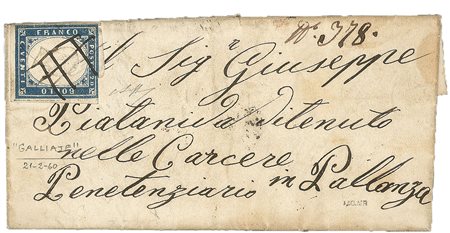 N.° 378.
FRANCO
C. VENTI
POSTE
BOLLO
Al Sig.r Giuseppe
Piatanida ditenuto
nelle Carcere
Penetenziario in Pallanza
"GALLIATE"
21-2-60